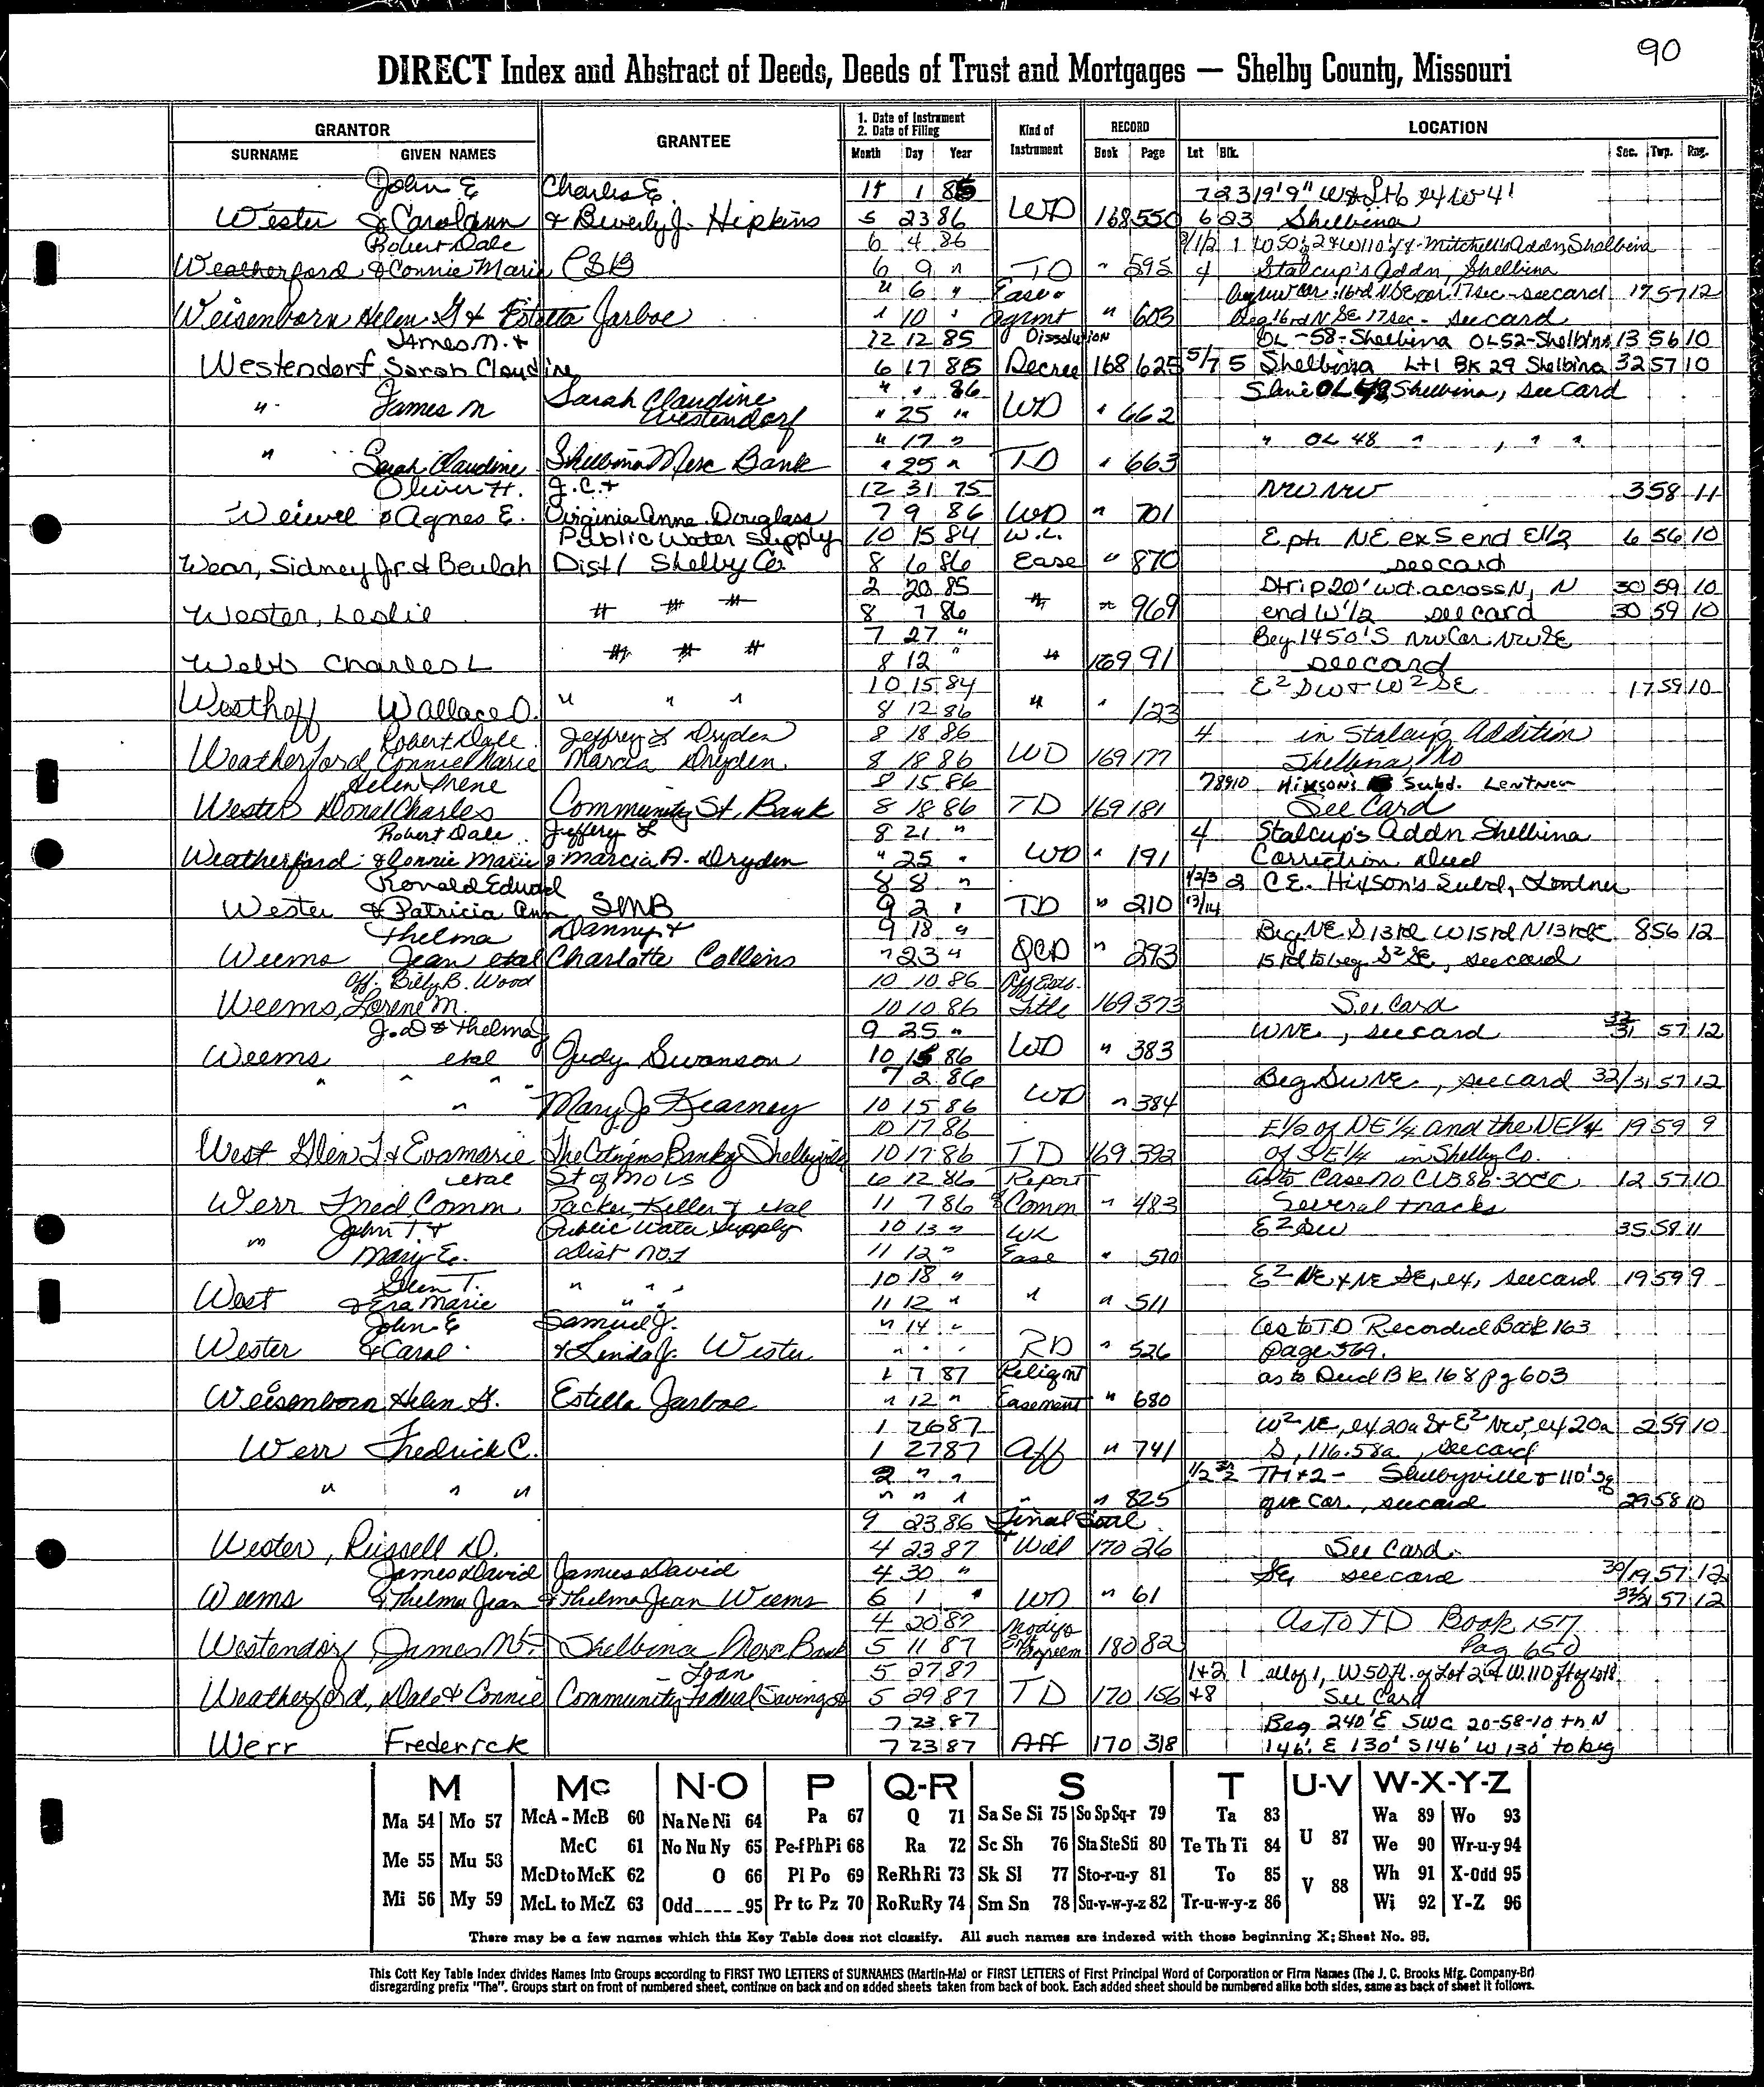 90
DIRECT Index and Abstract of Deeds, Deeds of Trust and Mortgages — Shelby County, Missouri
GRANTOR GRANTEE 1. Date of Instrument 2. Date of Filing Kind of Instrument RECORD LOCATION
SURNAME GIVEN NAMES Month Day Year Book Page Lot Blk. Sec. Twp. Rng.
John E Charles E. 1 7 23 19'9" W
Wester & Carolann & Beverly J. Hipkins 5 23 86 WD 168 550 6 23 Shelbina
Robert Dale 6 4 86 1 Mitchell's Addn, Shelbina
Weatherford & Connie Marie CSB 6 9 " TD " 595 4 Stalcup's Addn, Shelbina
" 6 " Ease & see card 17 57 12
Weisenborn Helen G & Estella Jarboe " 10 " Agrmt " 603 Beg 16rd N SE 17 sec - see card
James N. & 12 12 85 Dissolution OL-58-Shelbina OL52-Shelbina 13 56 10
Westendorf, Sarah Claudine 6 17 85 Decree 168 625 5/7 5 Shelbina Lt 1 BK 29 Shelbina 32 57 10
" James N Sarah Claudine " " 86 OL 48, Shelbina, see card
Westendorf " 25 " WD " 662
" 17 " " OL 48 " , " "
" Sarah Claudine Shelbina Merc Bank " 25 " TD " 663
Oliver H. J.C. & 12 31 75 NW NW 3 58 11
Weiwel & Agnes E. Virginia Anne Douglass 7 9 86 WD " 701
Public Water Supply 10 15 84 W.L. E pt NE ex S end E1/2 6 56 10
Wear, Sidney Jr. & Beulah Dist 1 Shelby Co 8 6 86 Ease " 870 see card
2 20 85 Strip 20' wd. across N, N 30 59 10
Wester, Leslie " " " 8 7 86 " " 969 end W1/2 see card 30 59 10
7 27 " Beg 1450'S NW Cor NW SE
Webb Charles L " " " 8 12 " " 169 91 see card
10 15 84 E2 SW & W2 SE 17 59 10
Westhoff Wallace O. " " " 8 12 86 " " 123
Robert Dale Jeffrey L Dryden 8 18 86 4 in Stalcup Addition
Weatherford Connie Marie Marcia Dryden. 8 18 86 WD 169 177 Shelbina, Mo
Helen Irene 8 15 86 7 8 9 10 Hixson's Subd. Lentner
Wester Donel Charles Community St. Bank 8 18 86 TD 169 181 See Card
Robert Dale Jeffery L 8 21 " 4 Stalcup's Addn Shelbina
Weatherford & Connie Marie & Marcia A. Dryden " 25 " WD " 191 Correction Deed
Ronald Edward 8 8 " 1/2/3 2 C.E. Hixson's Subd, Lentner
Wester & Patricia Ann SMB 9 2 " TD " 210 13/14
Thelma Danny & 9 18 " Beg NE S 13rd W 15rd N 13rd E 8 56 12
Weems Jean etal Charlotte Collins " 23 " QCD " 293 15rd to beg S2 SE, see card
Off. Billy B. Wood 10 10 86 Aff
Weems, Lorene M. 10 10 86 Title 169 373 See Card
J.D & Thelma J 9 25 " WNE, see card 32/31 57 12
Weems etal Judy Swanson 10 15 86 WD " 383
" " " 7 2 86 Beg SW NE, see card 32/31 57 12
" Mary J. Kearney 10 15 86 WD " 384
10 17 86 E1/2 of NE1/4 and the NE1/4 19 59 9
West Glen T & Evamarie The Citizens Bank of Shelbyville 10 17 86 TD 169 392 of SE1/4 in Shelby Co.
etal St of Mo vs 6 12 86 Report as to Case no CV386-30CC 12 57 10
Werr Fred Comm Packer, Keller & etal 11 7 86 of Comm " 483 Several tracks
" John T. & Public Water Supply 10 13 " WL E2 SW 35 58 11
Mary E. Dist no. 1 11 12 " Ease " 510
Glen T. " " " 10 18 " E2 NE & NE SE, ex, see card 19 59 9
West & Era Marie " " 11 12 " " " 511
John E Samuel J. " 14 " as to TD Recorded Book 163
Wester & Carol & Linda J. Wester " " " RD " 526 page 569.
1 7 87 Religmt as to Deed Bk. 168 pg 603
Weisenborn Helen G. Estella Jarboe " 12 " Easement " 680
1 26 87 W2 NE, ex 20a S & E2 NW, ex 20a 2 59 10
Werr Fredrick C. 1 27 87 Aff " 741 S, 116.58a, see card
2 " " 1/2 Shelbyville & 110' sq
" " " " " " " " 825 see card 29 58 10
9 23 86 Final Settl
Wester, Russell D. 4 23 87 & Will 170 26 See Card
James David James David 4 30 " SE see card 30/19 57 12
Weems & Thelma Jean & Thelma Jean Weems 6 1 " WD " 61 32/31 57 12
4 20 87 Modif & As To TD Book 157
Westendorf James N. Shelbina Merc Bank 5 11 87 Ext Agreem 180 82 Pag 650
Loan 5 27 87 1+2 1 all of 1, W50ft. of Lot 2 & W.110 ft of lot 8
Weatherford, Dale & Connie Community Federal Savings & 5 29 87 TD 170 156 +8 See Card
7 23 87 Beg 240'E SWC 20-58-10 th N
Werr Frederick 7 23 87 Aff 170 318 146' E 130' S 146' W 130' to beg
M Mc N-O P Q-R S T U-V W-X-Y-Z
Ma 54 Mo 57 McA - McB 60 Na Ne Ni 64 Pa 67 Q 71 Sa Se Si 75 So Sp Sq-r 79 Ta 83 U 87 Wa 89 Wo 93
McC 61 No Nu Ny 65 Pe-f Ph Pi 68 Ra 72 Sc Sh 76 Sta Ste Sti 80 Te Th Ti 84 We 90 Wr-u-y 94
Me 55 Mu 58 McD to McK 62 O 66 Pl Po 69 Re Rh Ri 73 Sk Sl 77 Sto-r-u-y 81 To 85 V 88 Wh 91 X-Odd 95
Mi 56 My 59 McL to McZ 63 Odd_ _ _ _ _95 Pr to Pz 70 Ro Ru Ry 74 Sm Sn 78 Su-v-w-y-z 82 Tr-u-w-y-z 86 Wi 92 Y-Z 96
There may be a few names which this Key Table does not classify. All such names are indexed with those beginning X; Sheet No. 95.
This Cott Key Table Index divides Names Into Groups according to FIRST TWO LETTERS of SURNAMES (Martin-Ma) or FIRST LETTERS of First Principal Word of Corporation or Firm Names (The J. C. Brooks Mfg. Company-Br)
disregarding prefix "The". Groups start on front of numbered sheet, continue on back and on added sheets taken from back of book. Each added sheet should be numbered alike both sides, same as back of sheet it follows.